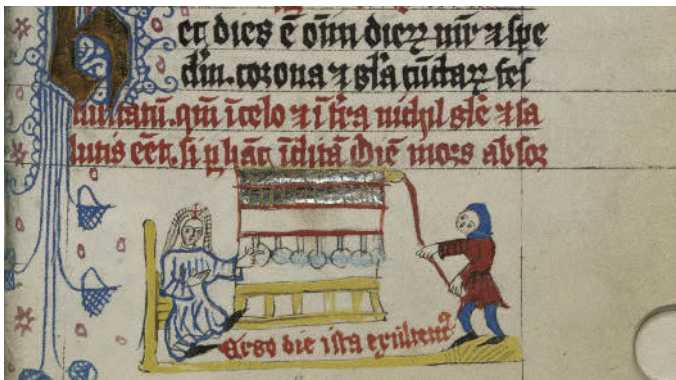 Hec dies ē oīm dieꝝ ⁊ spe
corona ⁊ gl̄a cūctaꝝ fes
tiuitatū. qm̄ ī celo ⁊ ī t̄ra nichil gl̄e ⁊ sa
lutis eēt. si ꝑ hāc īclitā diē mors absor
Ergo die ista exultemꝰ